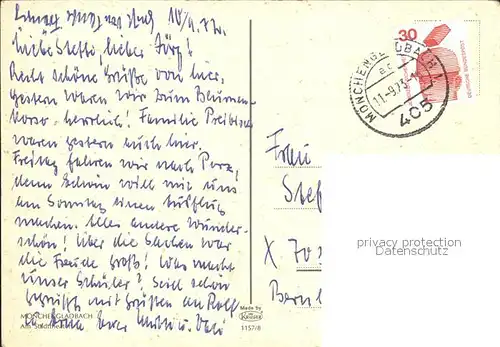 10/9. 73.
Liebe Steffi, lieber Jörg!
Recht schöne Grüße von hier.
Gestern waren wir zum Blumen-
korso - herrlich! Familie
waren gestern auch hier.
Freitag fahren wir nach Porz,
denn Edwin will mit uns
am Sonntag einen Ausflug
machen. Alles andere wunder-
schön! Über die Sachen war
die Freude groß! Was macht
unser Schüler? Seid schön
gegrüßt mit Grüßen an Rolf
MÖNCHENGLADBACH
Made by
KRÜGER
1157/8
30
MÖNCHENGLADBACH 1
11.-9.73-
405
Frau
Stef
X 70
Bern
privacy protection
Datenschutz